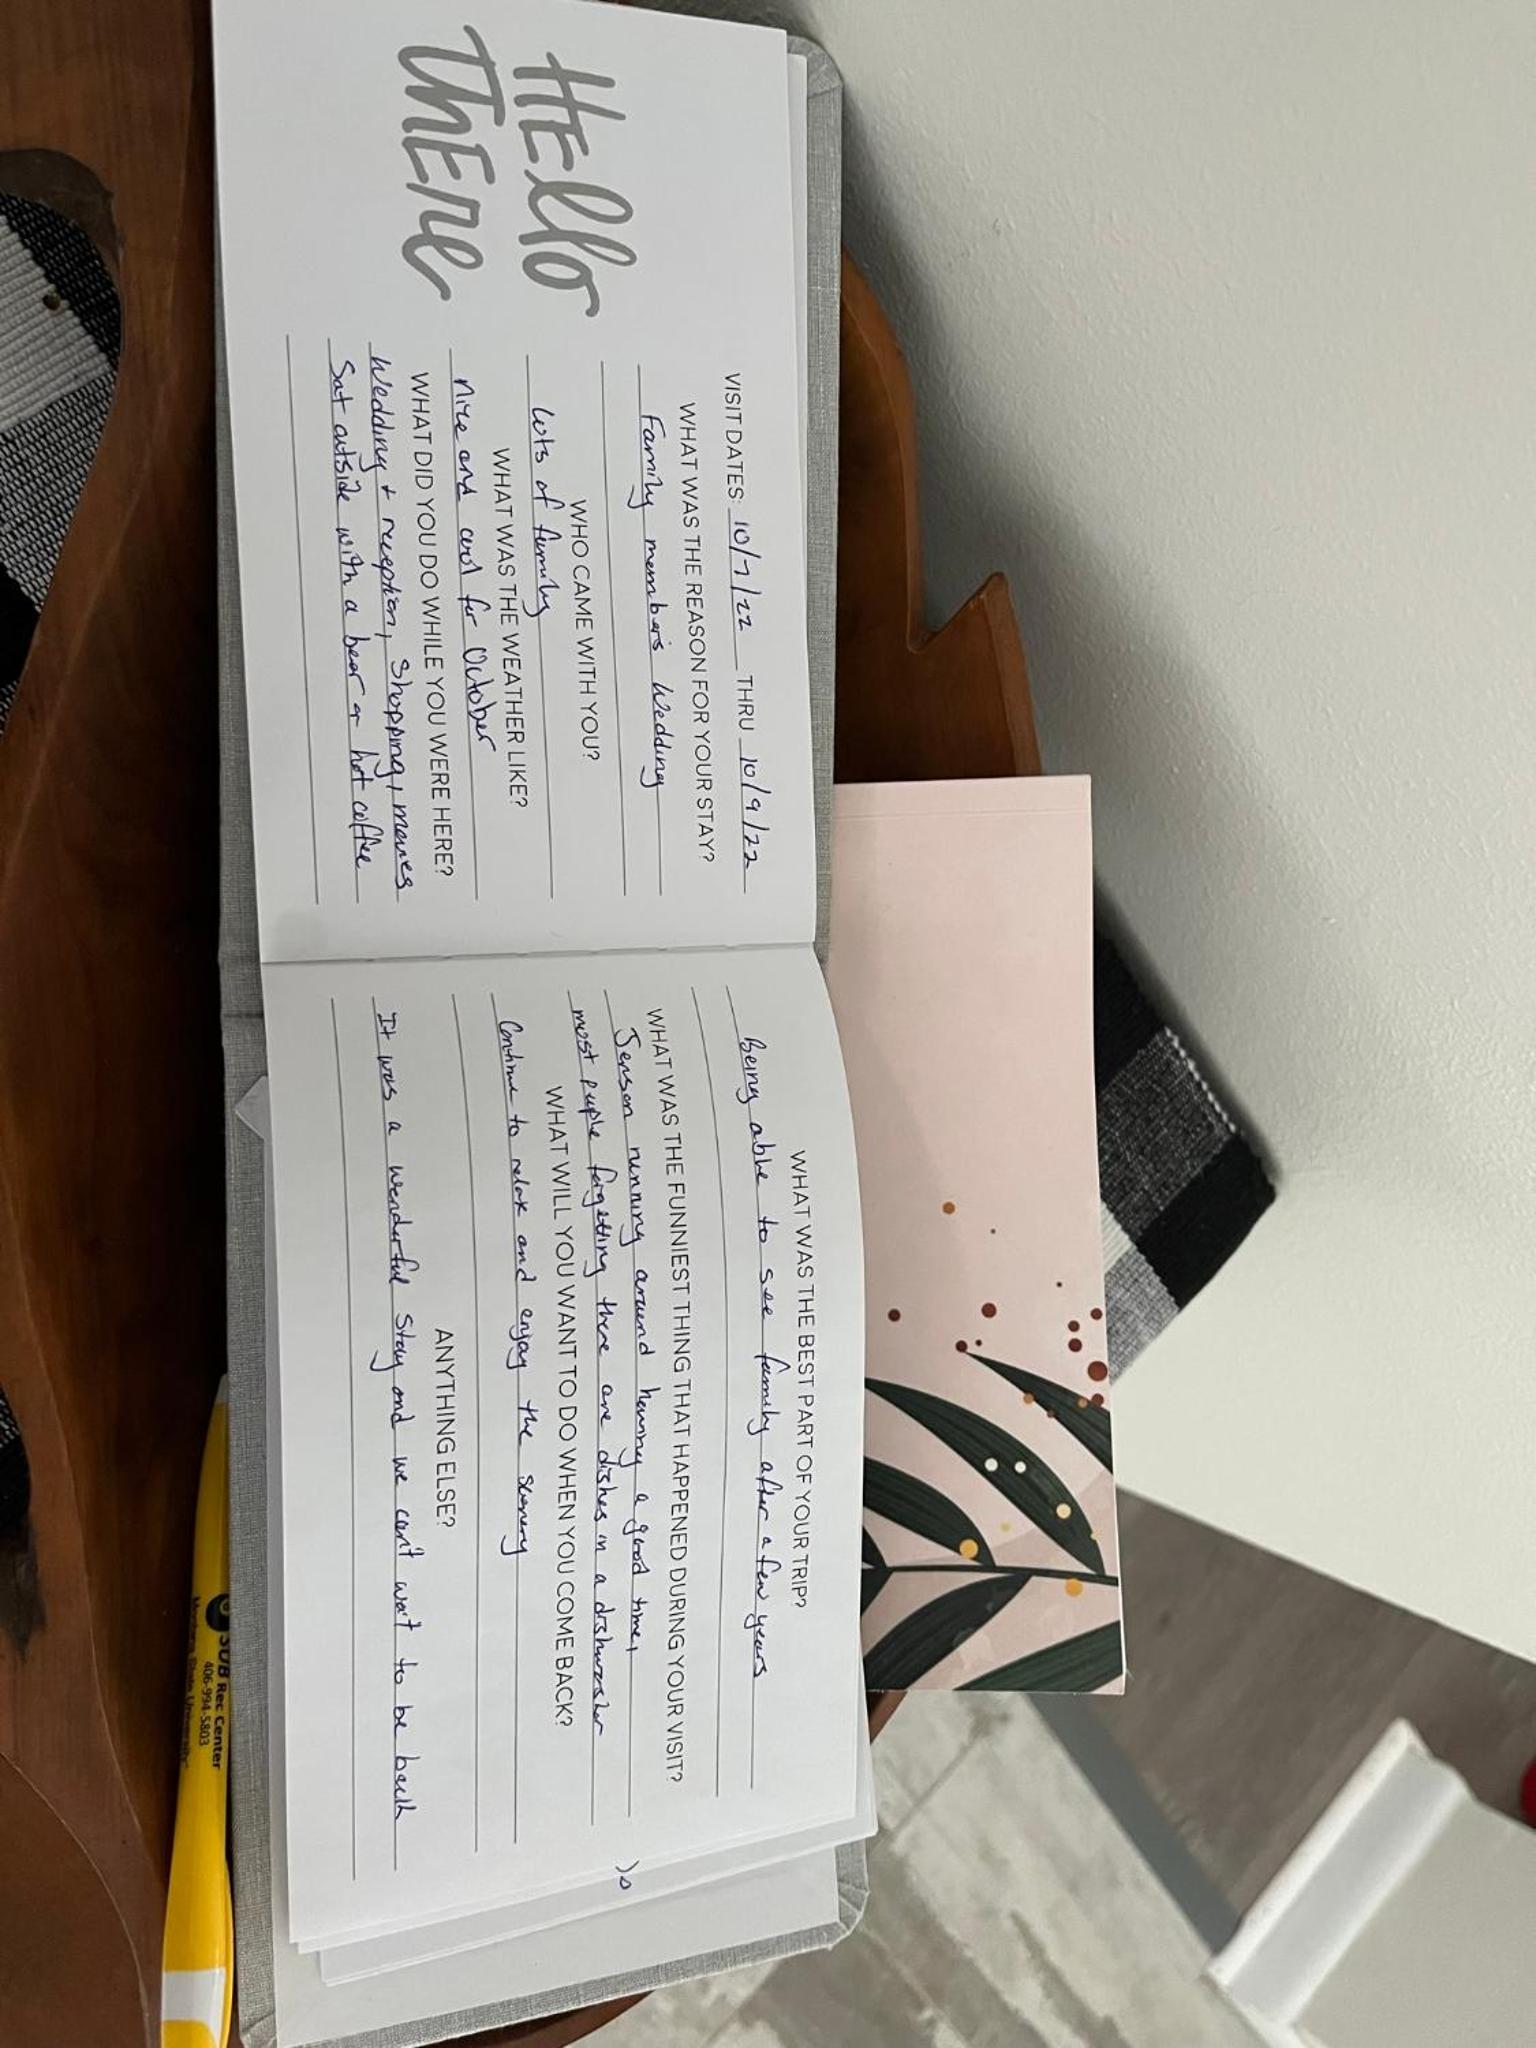 HEllo
thERE
VISIT DATES: 10/7/22 THRU 10/9/22
WHAT WAS THE REASON FOR YOUR STAY?
Family members Wedding
WHO CAME WITH YOU?
lots of family
WHAT WAS THE WEATHER LIKE?
Nice and cool for October
WHAT DID YOU DO WHILE YOU WERE HERE?
Wedding + reception, Shopping, movies
Sat outside with a bear or hot coffee
WHAT WAS THE BEST PART OF YOUR TRIP?
Being able to see family after a few years
WHAT WAS THE FUNNIEST THING THAT HAPPENED DURING YOUR VISIT?
Jenson running around having a good time,
most people forgetting there are dishes in a dishwasher
WHAT WILL YOU WANT TO DO WHEN YOU COME BACK?
Continue to relax and enjoy the scenery
ANYTHING ELSE?
It was a wonderful Stay and we can't wait to be back
SUB Rec Center
406-994-5803
Montana State University